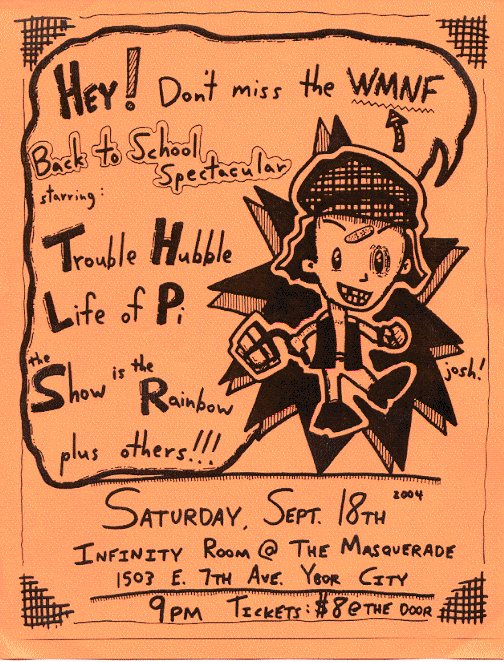 HEY! Don't miss the WMNF
Back to School
Spectacular
starring:
Trouble Hubble
Life of Pi
the Show is the Rainbow
plus others!!!
josh!
SATURDAY, SEPT. 18TH 2004
INFINITY ROOM @ THE MASQUERADE
1503 E. 7TH AVE. YBOR CITY
9PM TICKETS: $8 @ THE DOOR